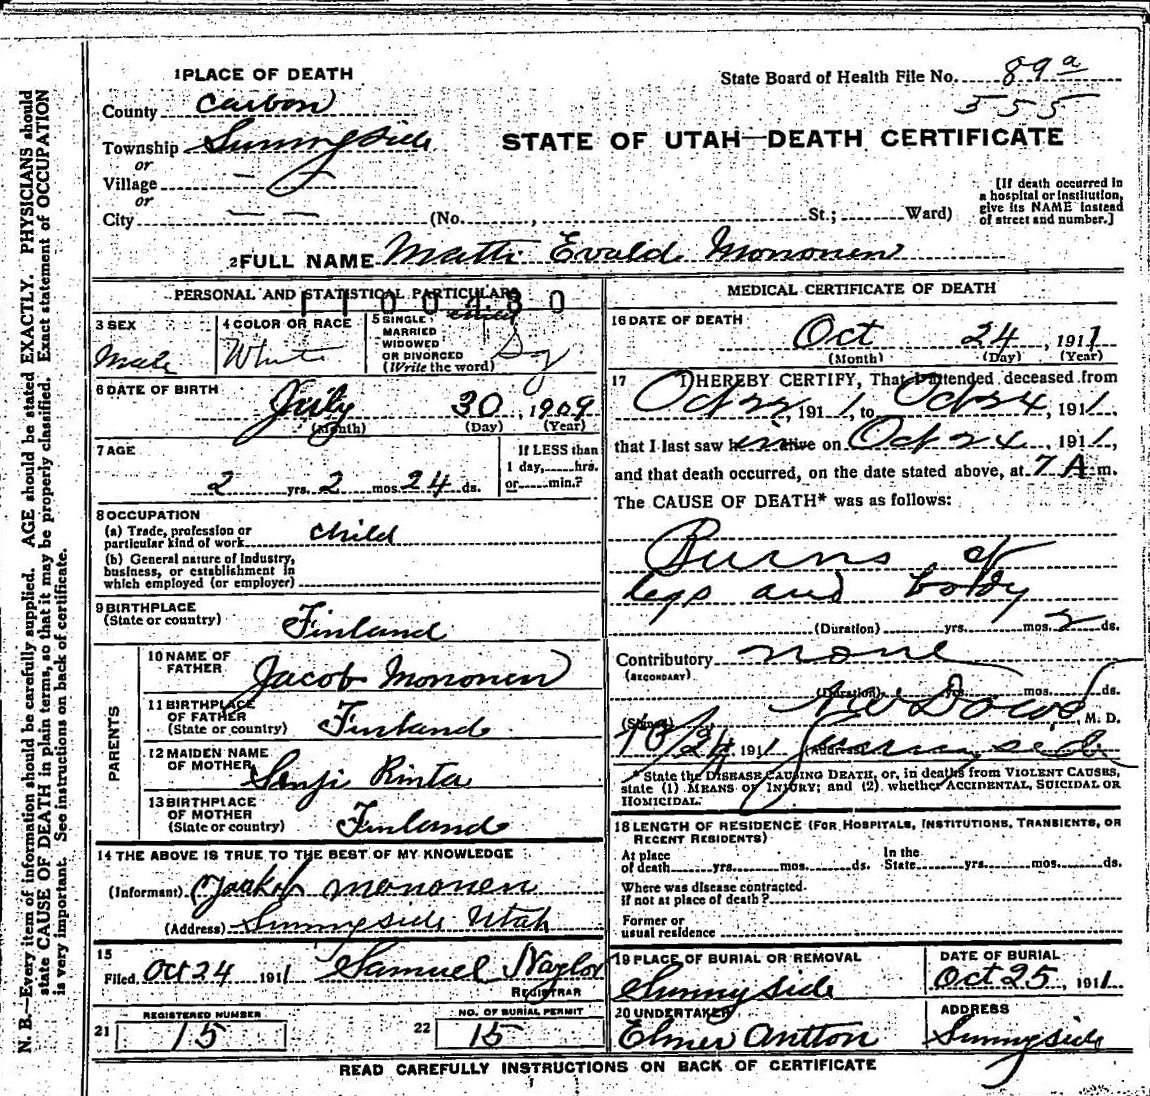 1 PLACE OF DEATH
State Board of Health File No. 89a
555
County Carbon
Township Sunnyside
or
Village — —
or
City — — (No. , St.; Ward)
STATE OF UTAH—DEATH CERTIFICATE
[If death occurred in
a hospital or institution,
give its NAME instead
of street and number.]
2 FULL NAME Matti Evald Mononen
PERSONAL AND STATISTICAL PARTICULARS
1100480
3 SEX
Male
4 COLOR OR RACE
White
5 SINGLE
MARRIED
WIDOWED
OR DIVORCED
(Write the word)
child
Sg
6 DATE OF BIRTH
July 30, 1909
(Month) (Day) (Year)
7 AGE
2 yrs. 2 mos. 24 ds.
If LESS than
1 day, hrs.
or min.?
8 OCCUPATION
(a) Trade, profession or
particular kind of work child
(b) General nature of industry,
business, or establishment in
which employed (or employer)
9 BIRTHPLACE
(State or country)
Finland
PARENTS
10 NAME OF
FATHER
Jacob Mononen
11 BIRTHPLACE
OF FATHER
(State or country)
Finland
12 MAIDEN NAME
OF MOTHER
Senji Rinta
13 BIRTHPLACE
OF MOTHER
(State or country)
Finland
14 THE ABOVE IS TRUE TO THE BEST OF MY KNOWLEDGE
(Informant) Jaakob Mononen
(Address) Sunnyside Utah
15
Filed Oct 24 1911 Samuel Naylor
REGISTRAR
21 REGISTERED NUMBER
15
22 NO. OF BURIAL PERMIT
15
MEDICAL CERTIFICATE OF DEATH
16 DATE OF DEATH
Oct 24, 1911
(Month) (Day) (Year)
17 I HEREBY CERTIFY, That I attended deceased from
Oct 22, 1911, to Oct 24, 1911,
that I last saw him alive on Oct 24, 1911,
and that death occurred, on the date stated above, at 7 A m.
The CAUSE OF DEATH* was as follows:
Burns of
legs and body
(Duration) yrs. mos. 2 ds.
Contributory none
(SECONDARY)
(Duration) yrs. mos. ds.
(Signed) Dowd M. D.
10/24, 1911 (Address) Sunnyside
* State the DISEASE CAUSING DEATH, or, in deaths from VIOLENT CAUSES,
state (1) MEANS OF INJURY; and (2) whether ACCIDENTAL, SUICIDAL OR
HOMICIDAL.
18 LENGTH OF RESIDENCE (FOR HOSPITALS, INSTITUTIONS, TRANSIENTS, OR
RECENT RESIDENTS)
At place
of death yrs. mos. ds.
In the
State yrs. mos. ds.
Where was disease contracted
if not at place of death?
Former or
usual residence
19 PLACE OF BURIAL OR REMOVAL
Sunnyside
DATE OF BURIAL
Oct 25, 1911
20 UNDERTAKER
Elmer Antton
ADDRESS
Sunnyside
READ CAREFULLY INSTRUCTIONS ON BACK OF CERTIFICATE
N. B.—Every item of information should be carefully supplied. AGE should be stated EXACTLY. PHYSICIANS should
state CAUSE OF DEATH in plain terms, so that it may be properly classified. Exact statement of OCCUPATION
is very important. See instructions on back of certificate.